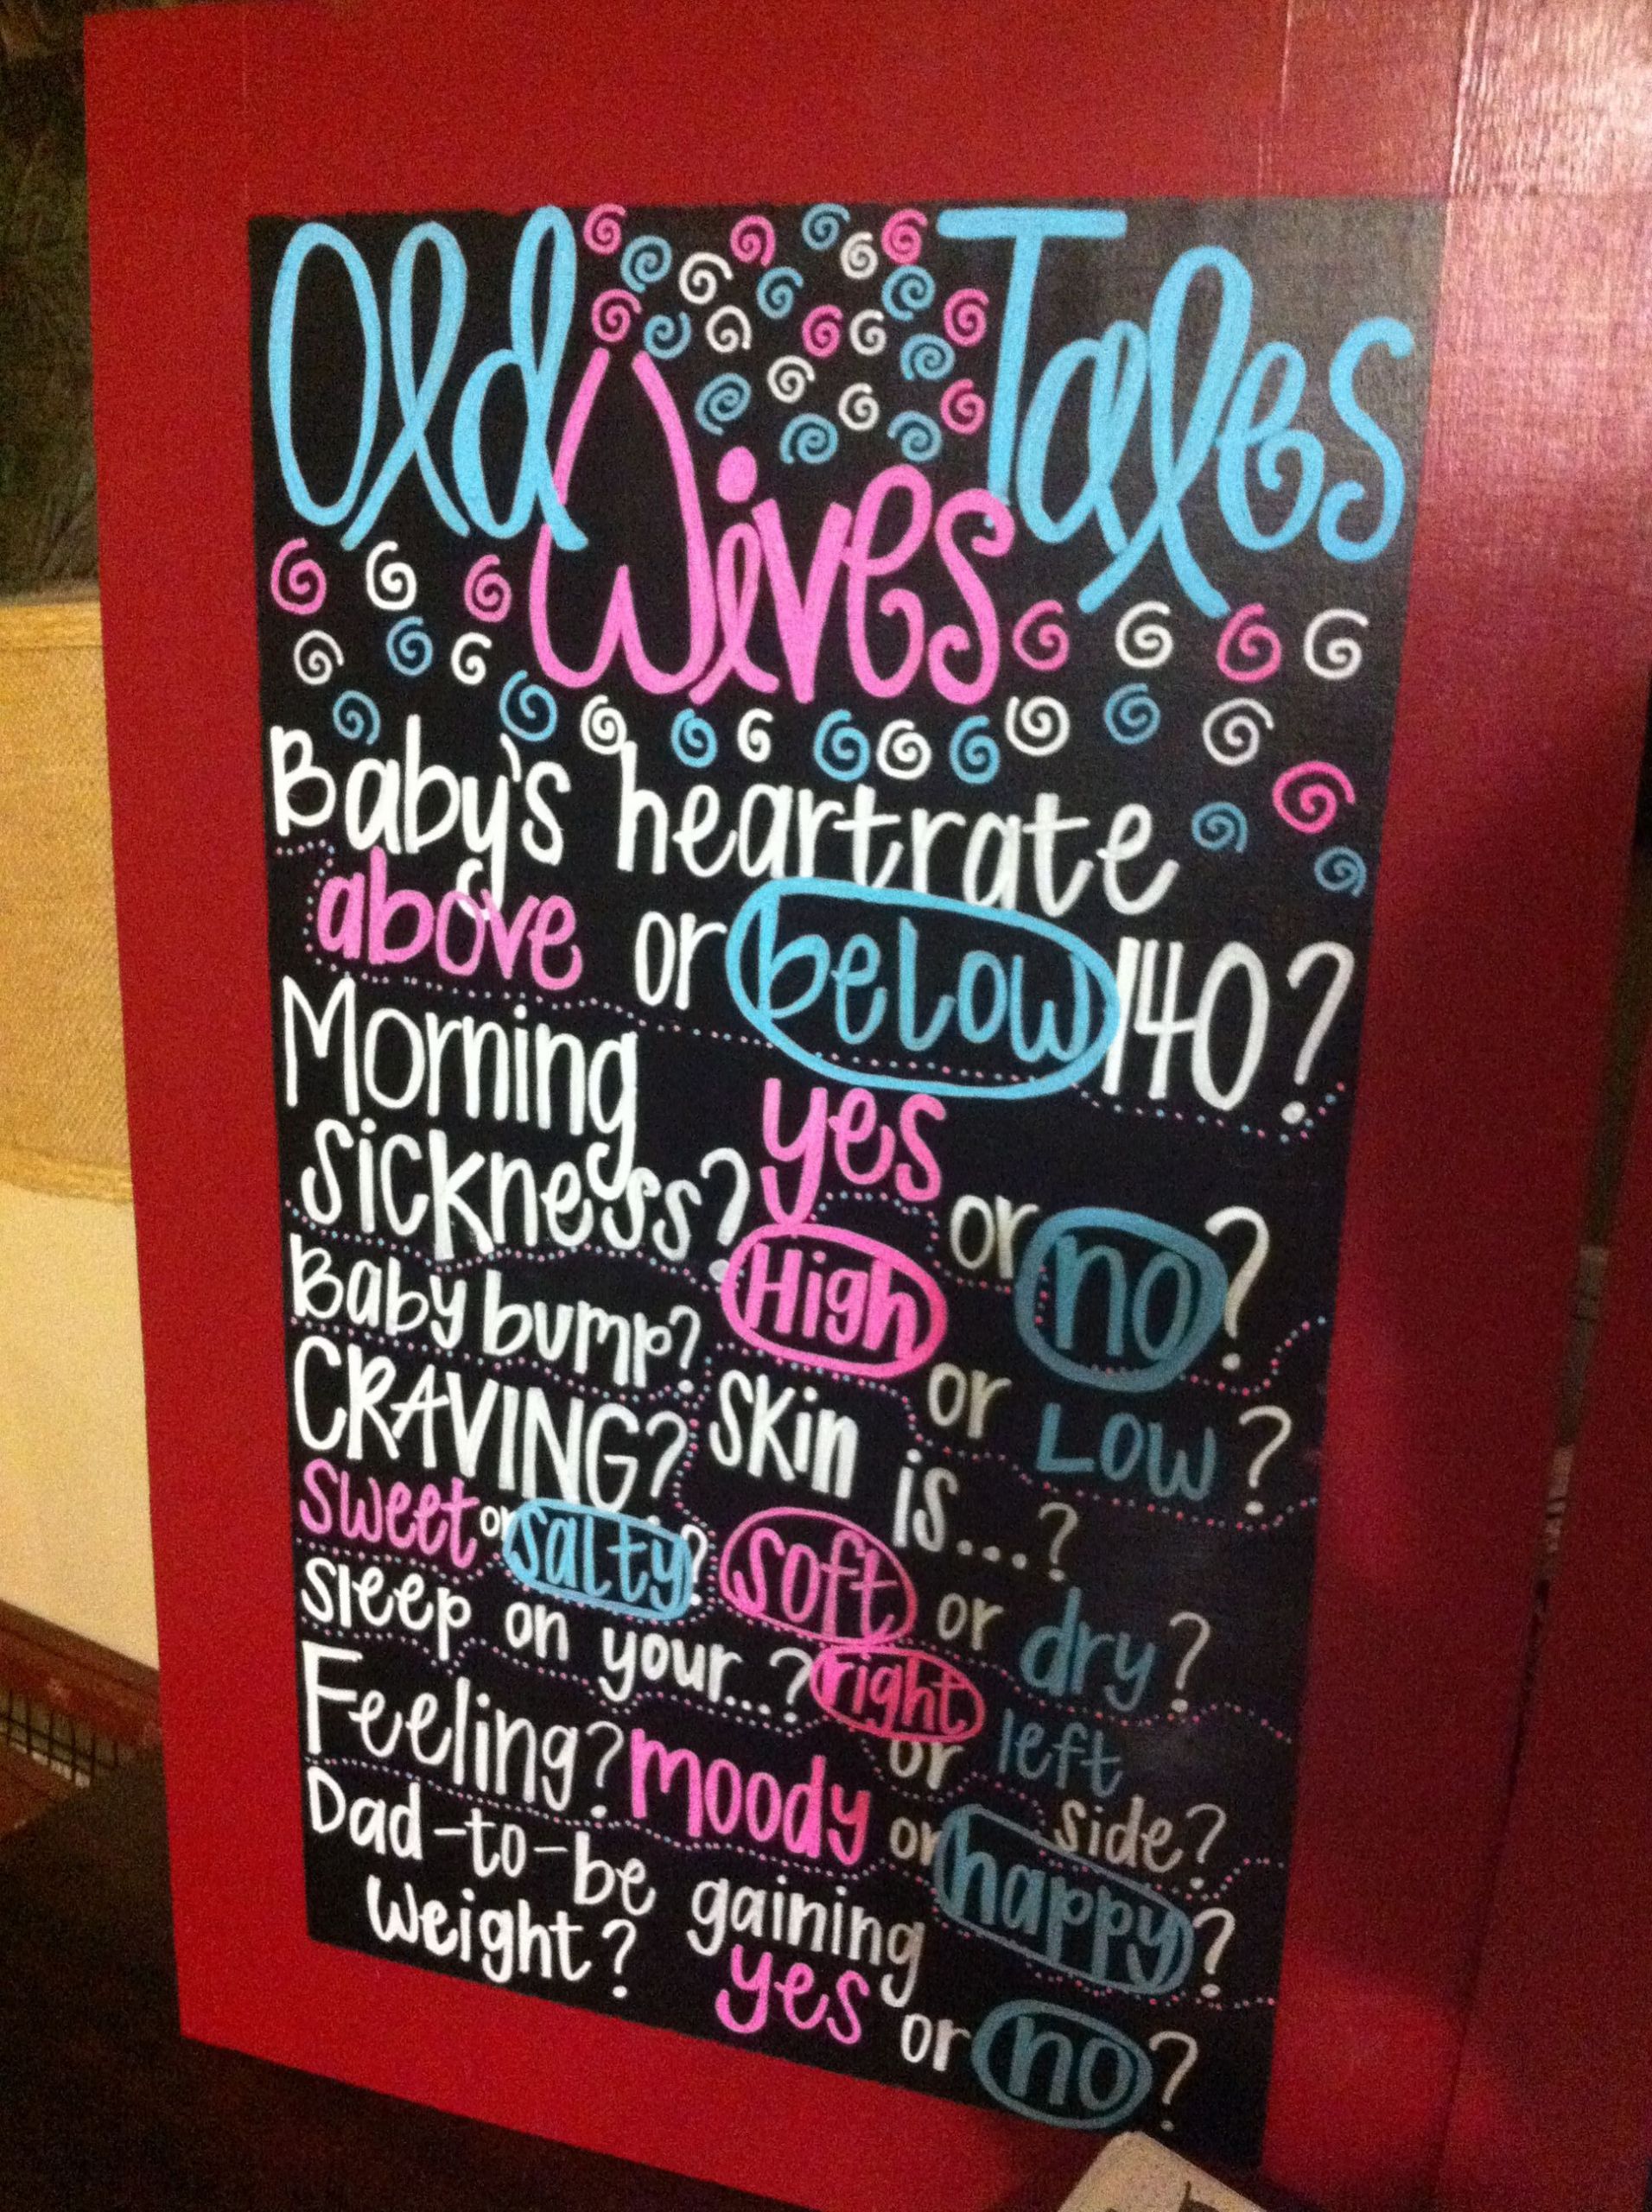 Old Wives Tales
Baby's heartrate
above or below 140?
Morning
sickness? yes or no?
Baby bump? High or Low?
CRAVING?
sweet or salty?
Skin is...?
soft or dry?
Sleep on your...? right or left side?
Feeling? moody or happy?
Dad-to-be gaining
weight? yes or no?